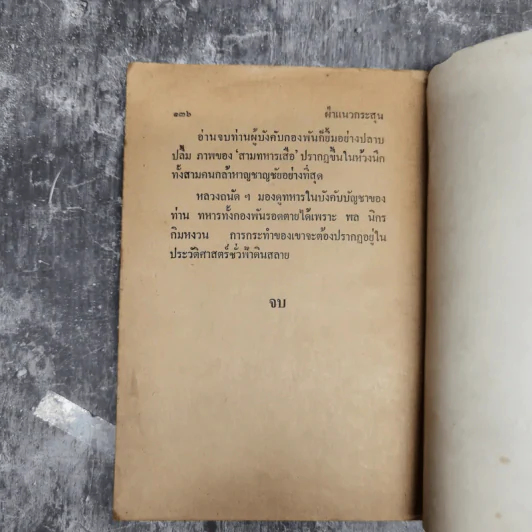 ๑๓๖ ฝ่าแนวกระสุน
อ่านจบท่านผู้บังคับกองพันก็ยิ้มอย่างปลาบ
ปลื้ม ภาพของ ‘สามทหารเสือ’ ปรากฏขึ้นในห้วงนึก
ทั้งสามคนกล้าหาญชาญชัยอย่างที่สุด
หลวงถนัด ฯ มองดูทหารในบังคับบัญชาของ
ท่าน ทหารทั้งกองพันรอดตายได้เพราะ พล นิกร
กิมหงวน การกระทำของเขาจะต้องปรากฏอยู่ใน
ประวัติศาสตร์ชั่วฟ้าดินสลาย
จบ